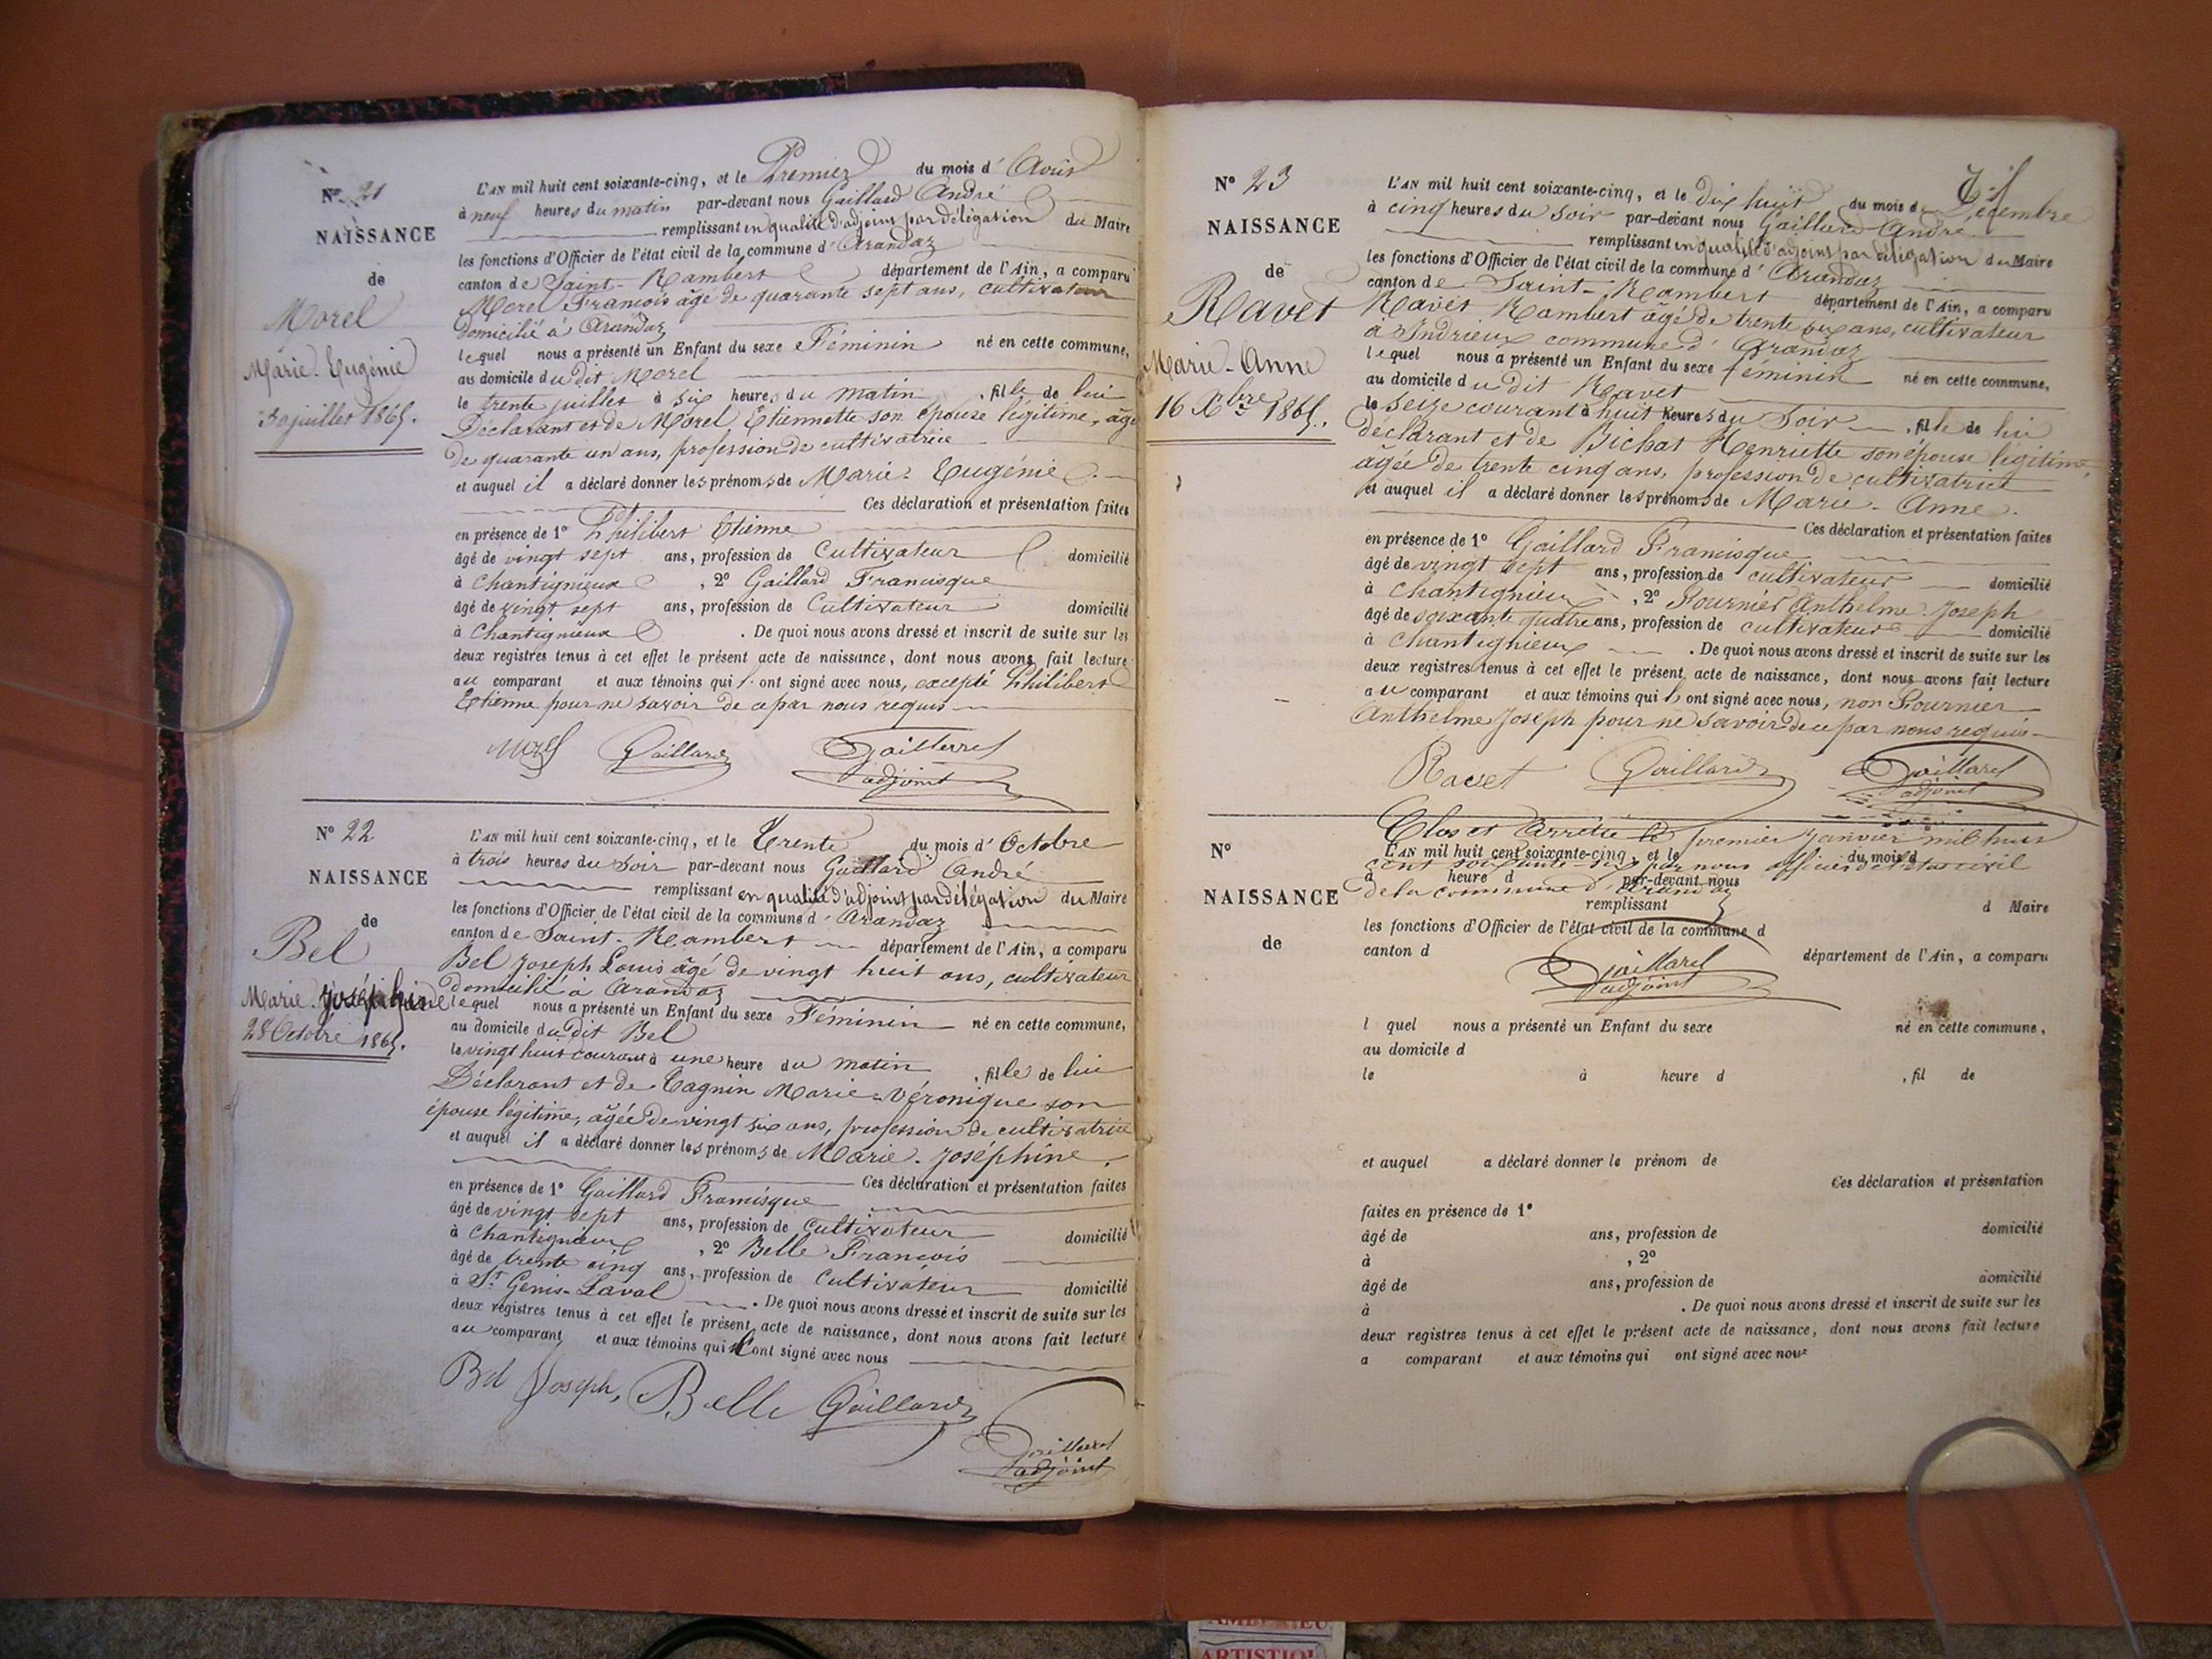 Nº 21
NAISSANCE
de
Morel
Marie-Eugénie
30 juillet 1865.
L'AN mil huit cent soixante-cinq, et le Premier du mois d'Août
à neuf heures du matin par-devant nous Gaillard André
remplissant en qualité d'adjoint par délégation du Maire
les fonctions d'Officier de l'état civil de la commune d'Arandaz
canton de Saint-Rambert département de l'Ain, a comparu
Morel François âgé de quarante sept ans, cultivateur
domicilié à Arandaz
lequel nous a présenté un Enfant du sexe Féminin né en cette commune,
au domicile du dit Morel
le trente juillet à six heures du matin, fille de lui
Déclarant et de Morel Etiennette son épouse légitime, âgé
de quarante un ans, profession de cultivatrice
et auquel il a déclaré donner les prénoms de Marie-Eugénie.
Ces déclaration et présentation faites
en présence de 1º Philibert Etienne
âgé de vingt sept ans, profession de Cultivateur domicilié
à Chantignieux, 2º Gaillard Francisque
âgé de vingt sept ans, profession de Cultivateur domicilié
à Chantignieux. De quoi nous avons dressé et inscrit de suite sur les
deux registres tenus à cet effet le présent acte de naissance, dont nous avons fait lecture
au comparant et aux témoins qui l'ont signé avec nous, excepté Philibert
Etienne pour ne savoir de ce par nous requis
Morel Gaillard Gaillard
adjoint
Nº 22
NAISSANCE
de
Bel
Marie-Joséphine
28 Octobre 1865.
L'AN mil huit cent soixante-cinq, et le Trente du mois d'Octobre
à trois heures du soir par-devant nous Gaillard André
remplissant en qualité d'adjoint par délégation du Maire
les fonctions d'Officier de l'état civil de la commune d'Arandaz
canton de Saint-Rambert département de l'Ain, a comparu
Bel Joseph Louis âgé de vingt huit ans, cultivateur
domicilié à Arandaz
lequel nous a présenté un Enfant du sexe Féminin né en cette commune,
au domicile du dit Bel
le vingt huit courant à une heure du matin, fille de lui
Déclarant et de Tagnin Marie-Véronique son
épouse légitime, âgée de vingt six ans, profession de cultivatrice
et auquel il a déclaré donner les prénoms de Marie-Joséphine.
Ces déclaration et présentation faites
en présence de 1º Gaillard Francisque
âgé de vingt sept ans, profession de Cultivateur domicilié
à Chantignieux, 2º Belle François
âgé de trente cinq ans, profession de Cultivateur domicilié
à St Genis-Laval. De quoi nous avons dressé et inscrit de suite sur les
deux registres tenus à cet effet le présent acte de naissance, dont nous avons fait lecture
au comparant et aux témoins qui l'ont signé avec nous
Bel Joseph, Belle Gaillard
Gaillard
adjoint
Nº 23
NAISSANCE
de
Ravet
Marie-Anne
16 Xbre 1865.
L'AN mil huit cent soixante-cinq, et le dix huit du mois de Décembre
à cinq heures du soir par-devant nous Gaillard André
remplissant en qualité d'adjoint par délégation du Maire
les fonctions d'Officier de l'état civil de la commune d'Arandaz
canton de Saint-Rambert département de l'Ain, a comparu
Ravet Rambert âgé de trente six ans, cultivateur
à Indrieux commune d'Arandaz
lequel nous a présenté un Enfant du sexe féminin né en cette commune,
au domicile du dit Ravet
le seize courant à huit heures du Soir, fille de lui
déclarant et de Bichat Henriette son épouse légitime,
âgée de trente cinq ans, profession de cultivatrice
et auquel il a déclaré donner les prénoms de Marie-Anne.
Ces déclaration et présentation faites
en présence de 1º Gaillard Francisque
âgé de vingt sept ans, profession de cultivateur domicilié
à Chantignieux, 2º Fournier Anthelme Joseph
âgé de soixante quatre ans, profession de cultivateur domicilié
à Chantignieux. De quoi nous avons dressé et inscrit de suite sur les
deux registres tenus à cet effet le présent acte de naissance, dont nous avons fait lecture
au comparant et aux témoins qui l'ont signé avec nous, non Fournier
Anthelme Joseph pour ne savoir de ce par nous requis
Ravet Gaillard Gaillard
adjoint
Clos et Arrêté le premier Janvier mil huit
cent soixante-six par nous officier de l'état civil
de la commune d'Arandaz
Gaillard
adjoint
Nº
NAISSANCE
de
L'AN mil huit cent soixante-cinq, et le du mois d
à heure d par-devant nous
remplissant d Maire
les fonctions d'Officier de l'état civil de la commune d
canton d département de l'Ain, a comparu
l quel nous a présenté un Enfant du sexe né en cette commune,
au domicile d
le à heure d , fil de
et auquel a déclaré donner le prénom de
Ces déclaration et présentation
faites en présence de 1º
âgé de ans, profession de domicilié
à , 2º
âgé de ans, profession de domicilié
à . De quoi nous avons dressé et inscrit de suite sur les
deux registres tenus à cet effet le présent acte de naissance, dont nous avons fait lecture
a comparant et aux témoins qui ont signé avec nous